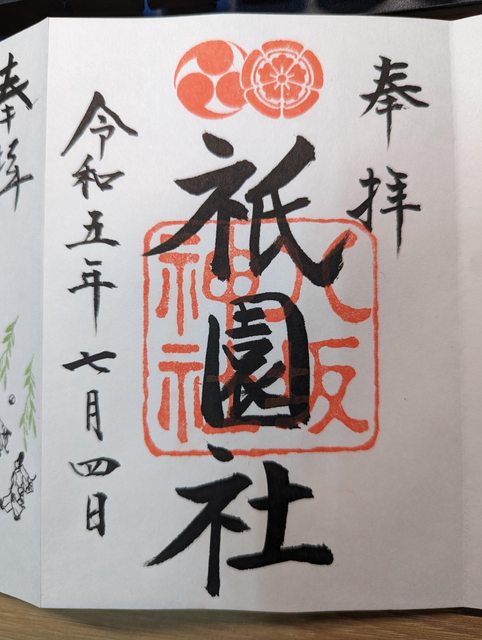 奉拝
八坂
神社
祇園社
令和五年七月四日
奉拝